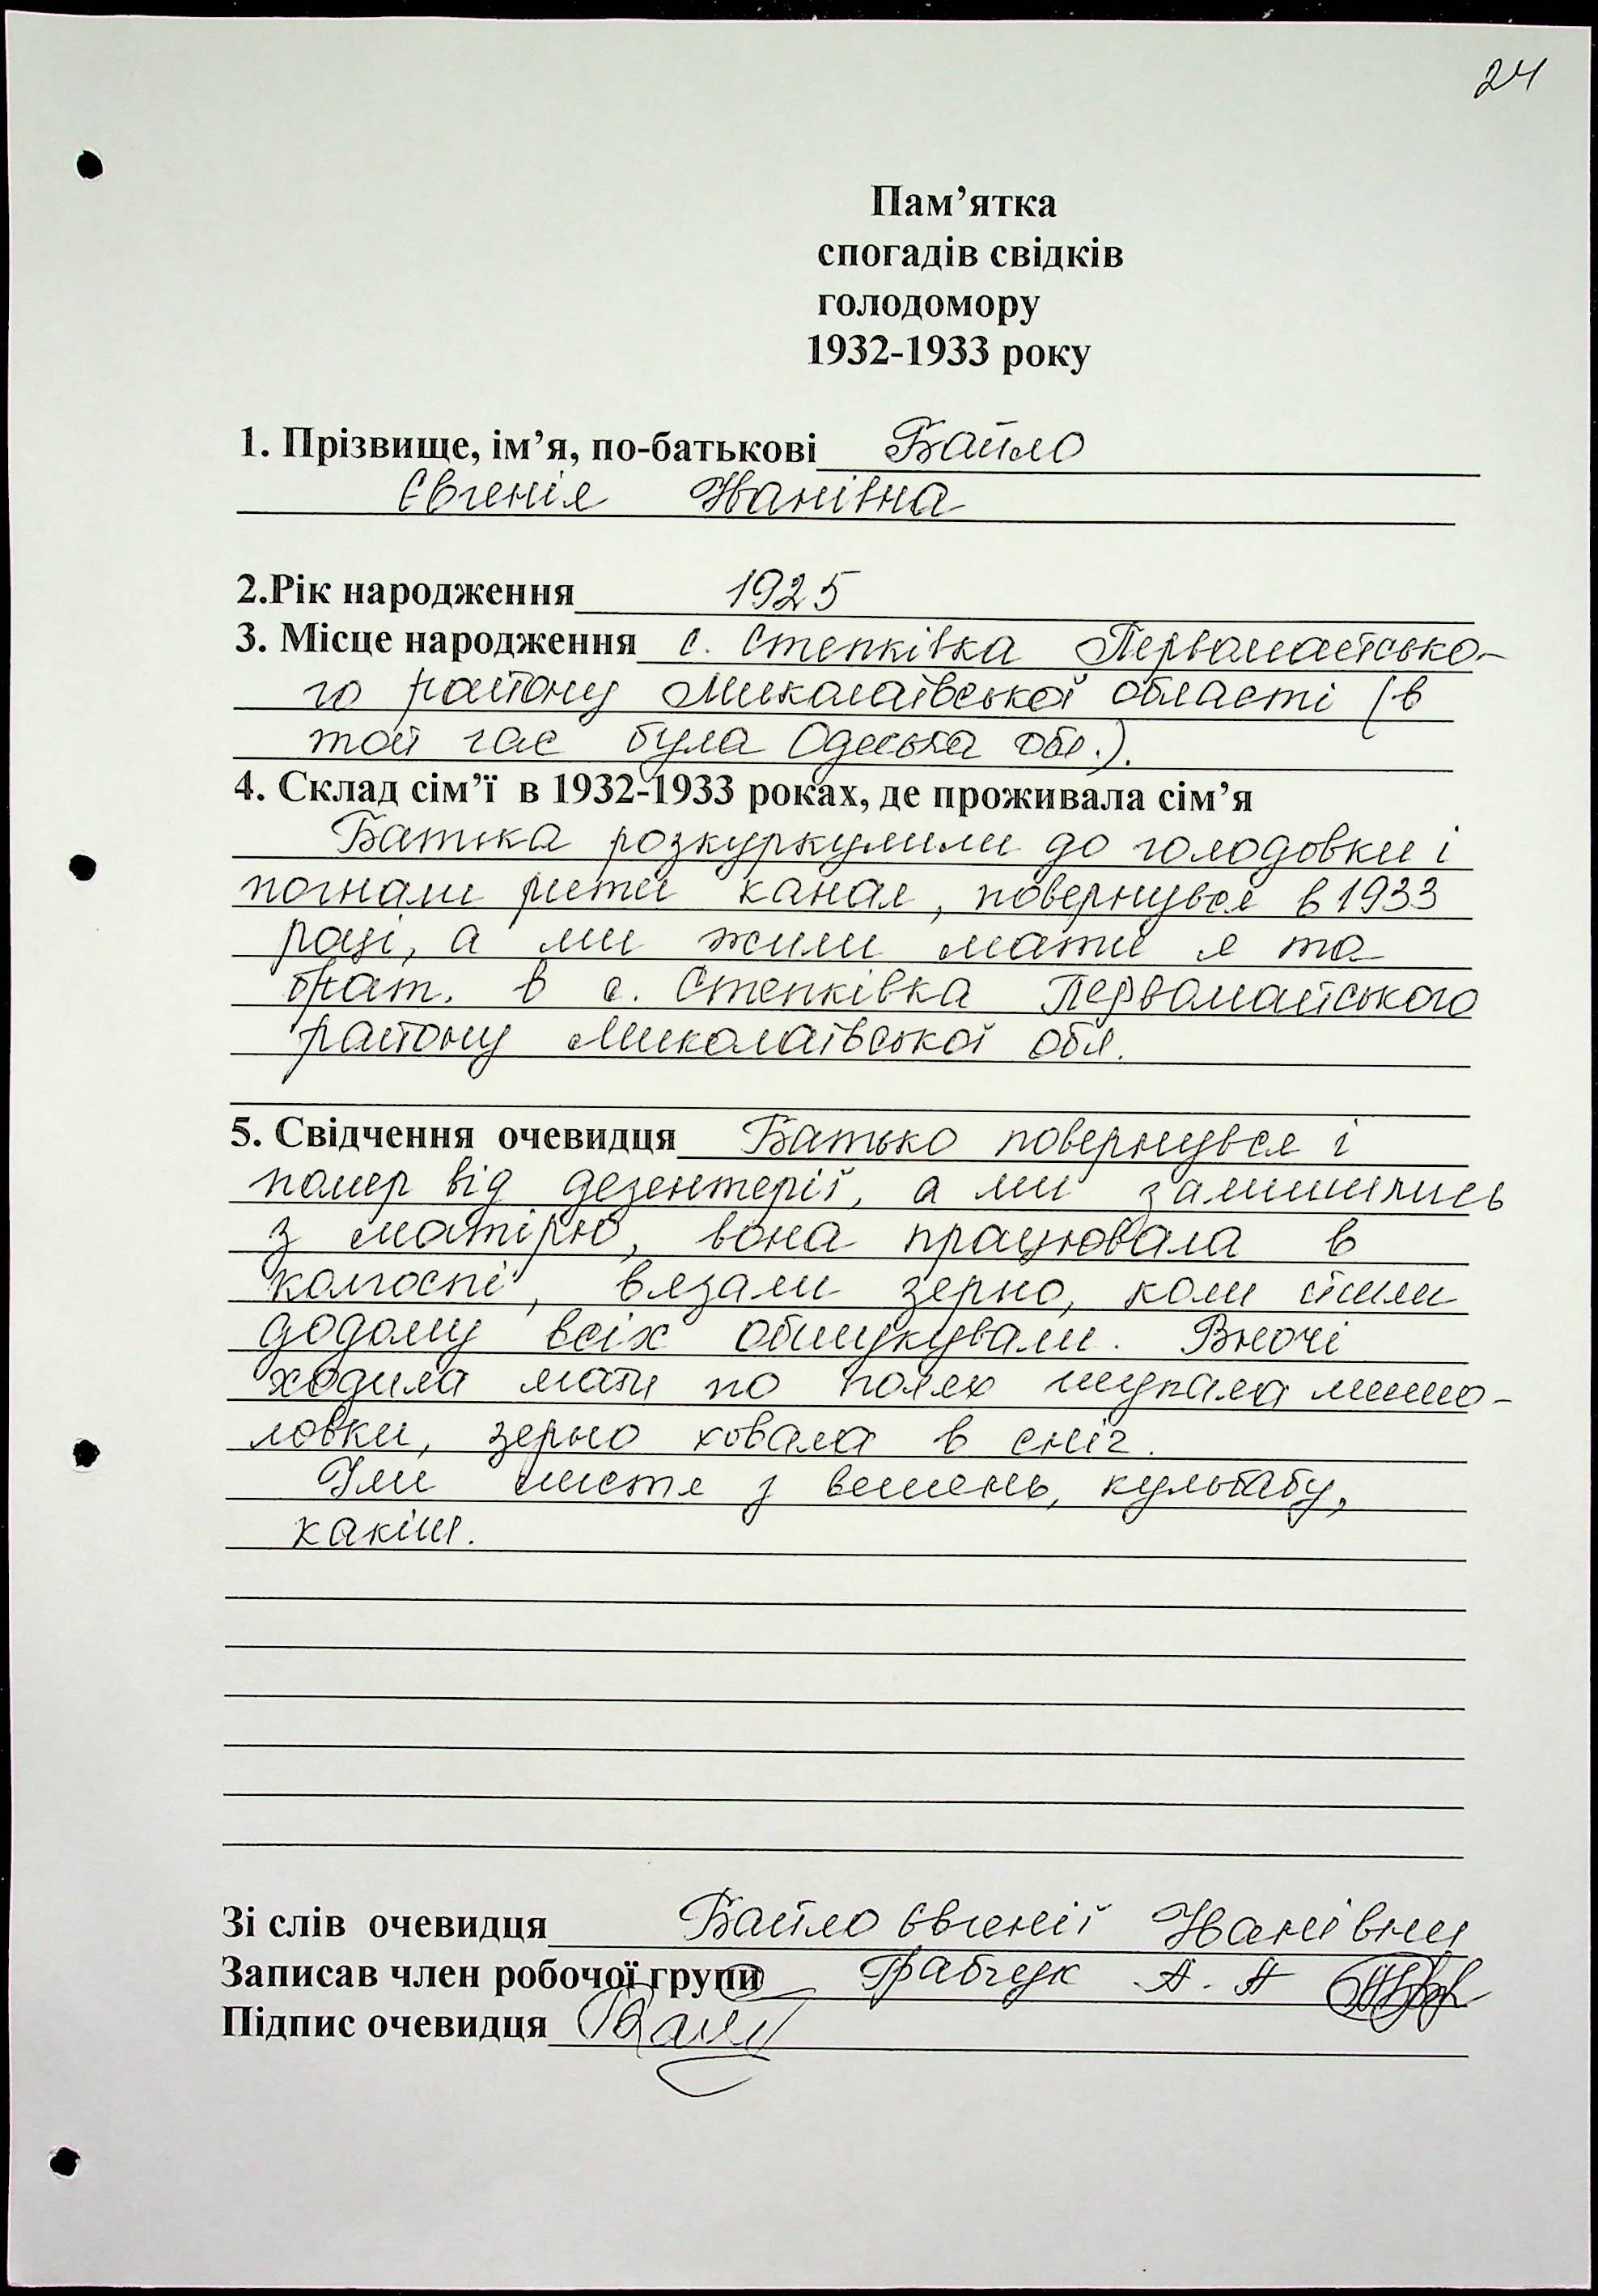 24
Пам’ятка
спогадів свідків
голодомору
1932-1933 року
1. Прізвище, ім’я, по-батькові Байло
Євгенія Іванівна
2.Рік народження 1925
3. Місце народження с. Степківка Первомайсько-
го району Миколаївської області (в
той час була Одеська обл.).
4. Склад сім’ї в 1932-1933 роках, де проживала сім’я
Батька розкуркулили до голодовки і
погнали рити канал, повернувся в 1933
році, а ми жили мати я та
брат. в с. Степківка Первомайського
району Миколаївської обл.
5. Свідчення очевидця Батько повернувся і
помер від дезентерії, а ми залишились
з матірю, вона працювала в
колгоспі, вязали зерно, коли йшли
додому всіх обшукували. Вночі
ходила мати по полях шукала мишо-
ловки, зерно ховала в сніг.
Їли листя з вешень, кульбабу,
какіш.
Зі слів очевидця Байло Євгенії Іванівни
Записав член робочої групи Грабчук А. А
Підпис очевидця